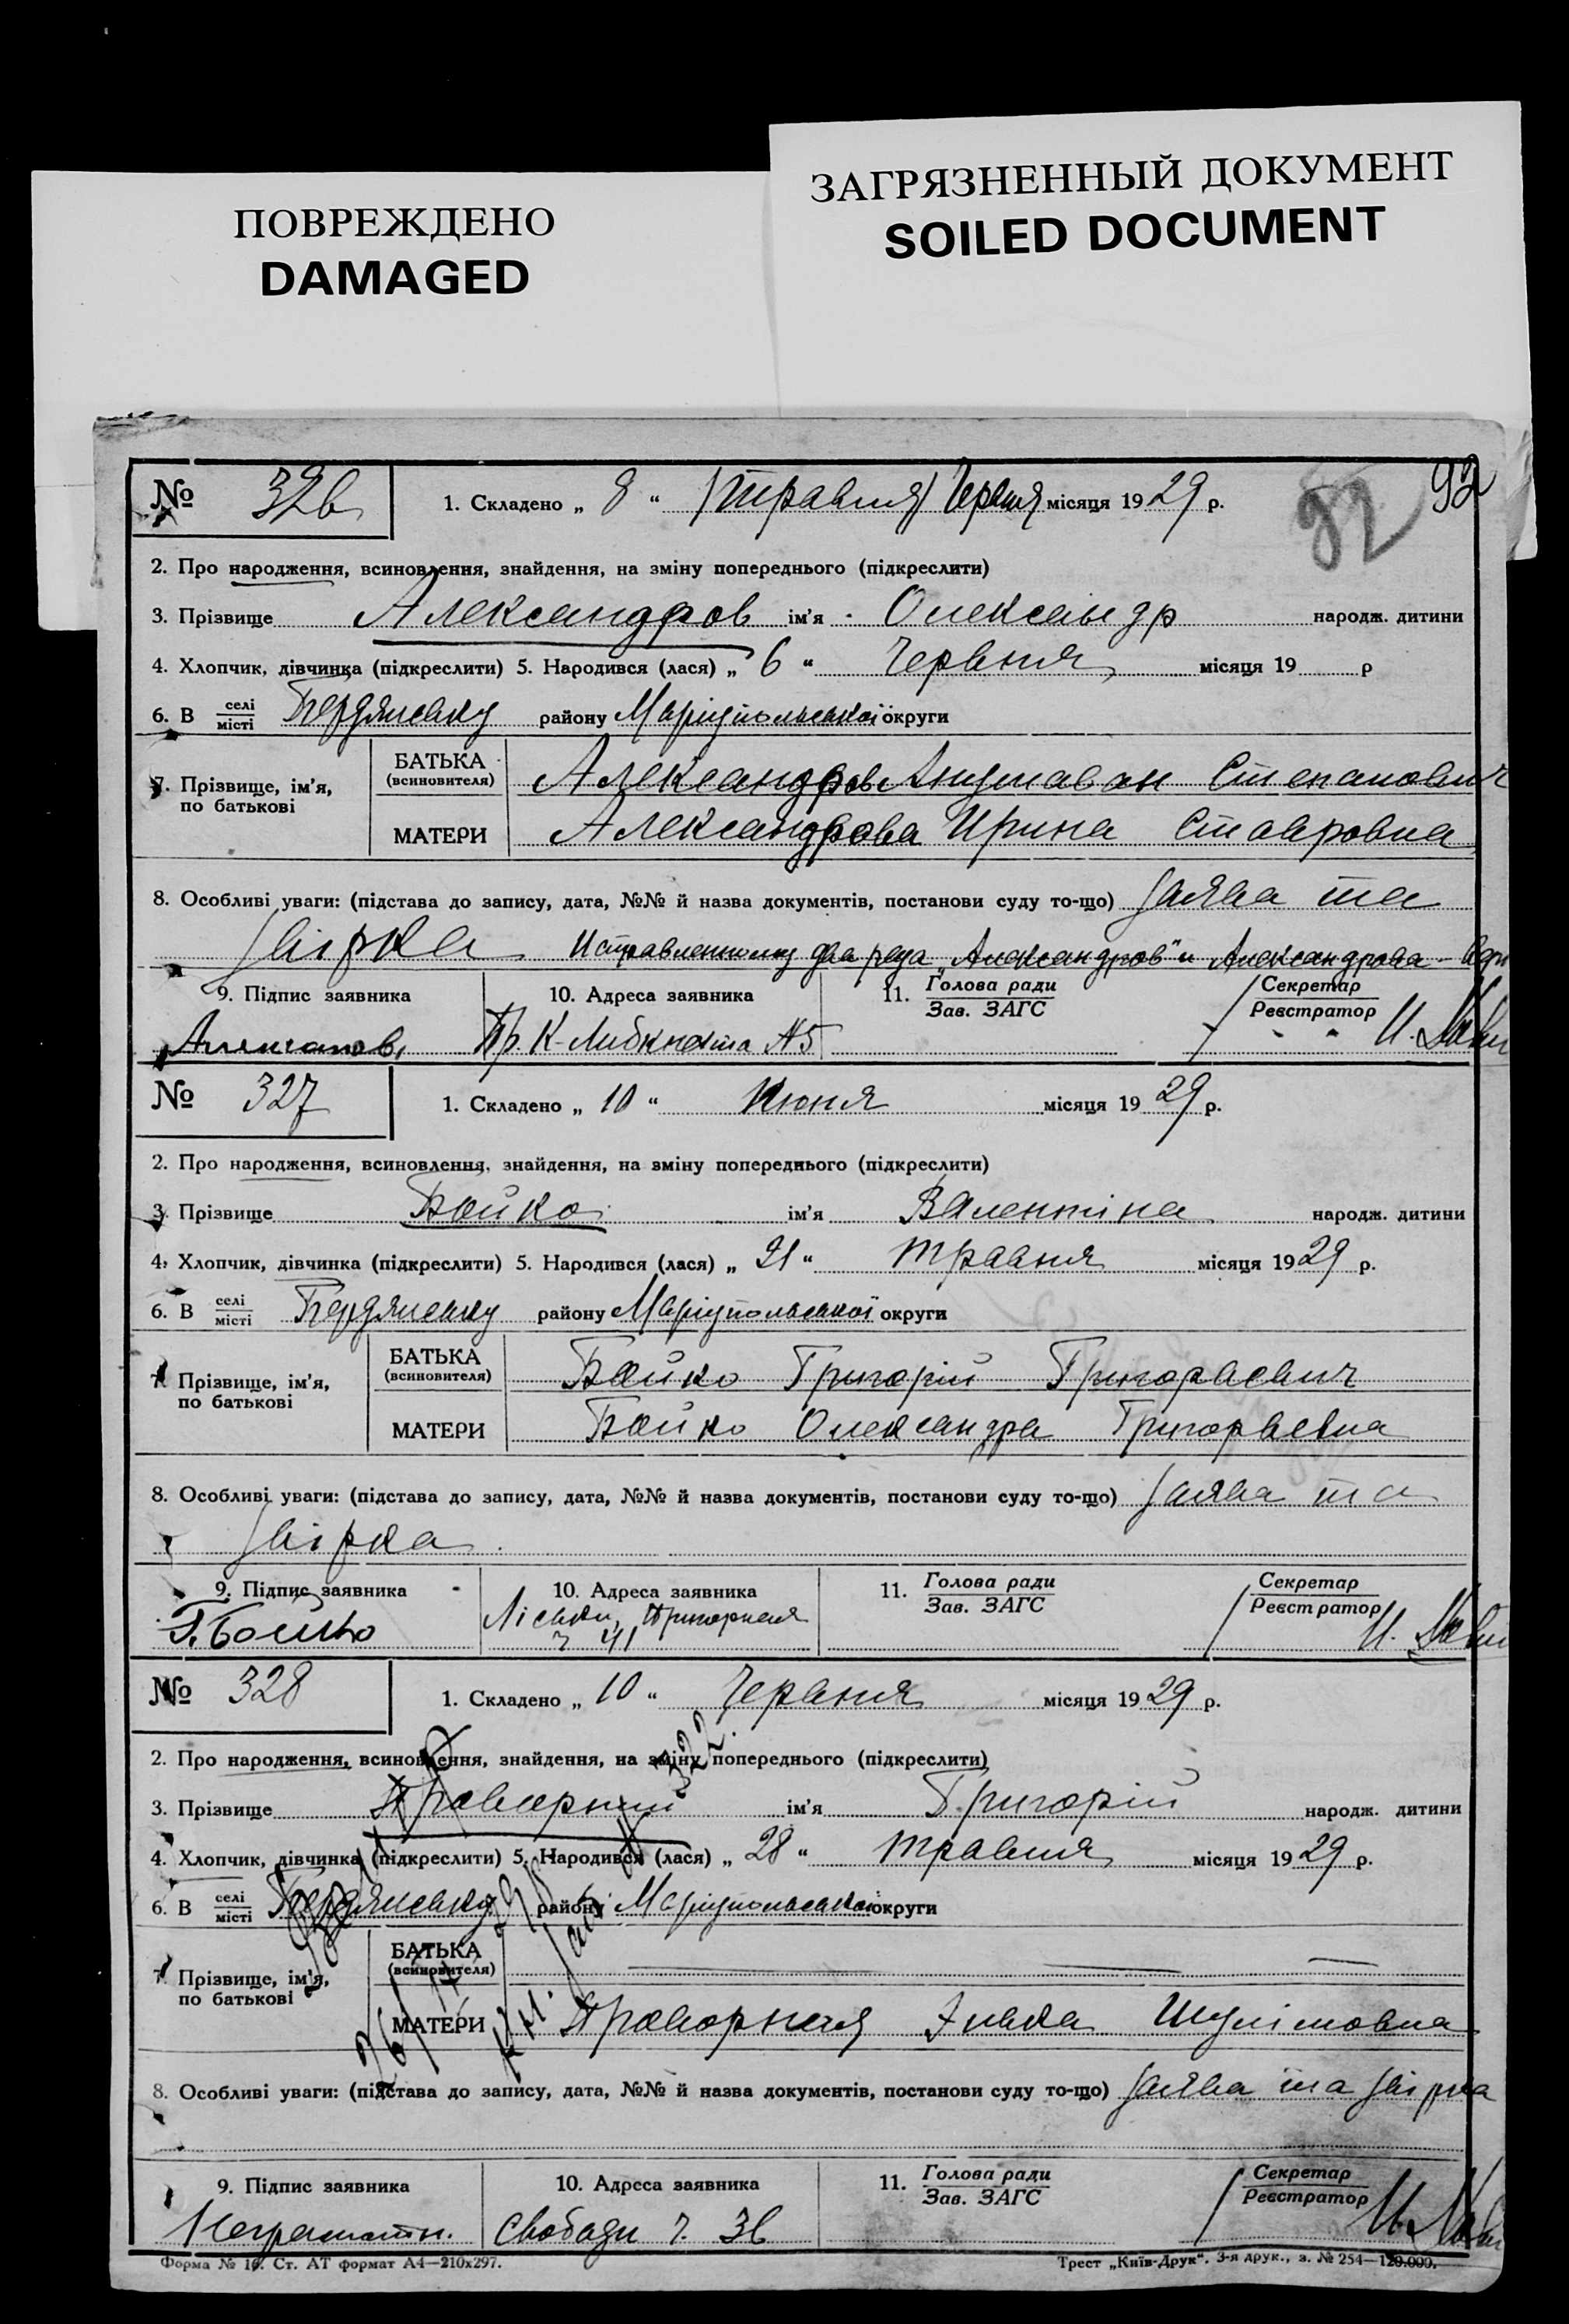 ПОВРЕЖДЕНО
DAMAGED
ЗАГРЯЗНЕННЫЙ ДОКУМЕНТ
SOILED DOCUMENT
92
82
№ 326
1. Складено „ 8 “ (травня) Червня місяця 1929 р.
2. Про народження, всиновлення, знайдення, на зміну попереднього (підкреслити)
3. Прізвище Александров ім'я Олександр народж. дитини
4. Хлопчик, дівчинка (підкреслити) 5. Народився (лася) „ 6 “ Червня місяця 19 р
6. В селі місті Бердянську району Маріупольської округи
7. Прізвище, ім'я, по батькові
БАТЬКА (всиновителя) Александров Степанович
МАТЕРИ Александрова Ирина Ставровна
8. Особливі уваги: (підстава до запису, дата, №№ й назва документів, постанови суду то-що) Заява та
Звірка Исправленному два раза „Александров" и Александрова -
9. Підпис заявника 10. Адреса заявника 11. Голова ради Зав. ЗАГС Секретар Реєстратор
Пр. К-Либкнехта №5
№ 327
1. Складено „ 10 “ Июня місяця 1929 р.
2. Про народження, всиновлення, знайдення, на зміну попереднього (підкреслити)
3. Прізвище Бойко ім'я Валентіна народж. дитини
4. Хлопчик, дівчинка (підкреслити) 5. Народився (лася) „ 21 “ травня місяця 1929 р.
6. В селі місті Бердянську району Маріупольської округи
7. Прізвище, ім'я, по батькові
БАТЬКА (всиновителя) Бойко Григорій Григораевич
МАТЕРИ Бойко Олександра Григораевна
8. Особливі уваги: (підстава до запису, дата, №№ й назва документів, постанови суду то-що) Заява та
Звірка
9. Підпис заявника 10. Адреса заявника 11. Голова ради Зав. ЗАГС Секретар Реєстратор
Г. Бойко
ч 41
№ 328
1. Складено „ 10 “ Червня місяця 1929 р.
2. Про народження, всиновлення, знайдення, на зміну попереднього (підкреслити)
3. Прізвище Проворний ім'я Григорій народж. дитини
4. Хлопчик, дівчинка (підкреслити) 5. Народився (лася) „ 28 “ травня місяця 1929 р.
6. В селі місті Бердянську району Маріупольської округи
7. Прізвище, ім'я, по батькові
БАТЬКА (всиновителя)
МАТЕРИ Проворная Шулімовна
8. Особливі уваги: (підстава до запису, дата, №№ й назва документів, постанови суду то-що) Заява та Звірка
9. Підпис заявника 10. Адреса заявника 11. Голова ради Зав. ЗАГС Секретар Реєстратор
Неграмотн. Свободи ч. 36
Форма № 16. Ст. АТ формат А4—210x297.
Трест „Київ-Друк". 3-я друк., з. № 254—120.000.